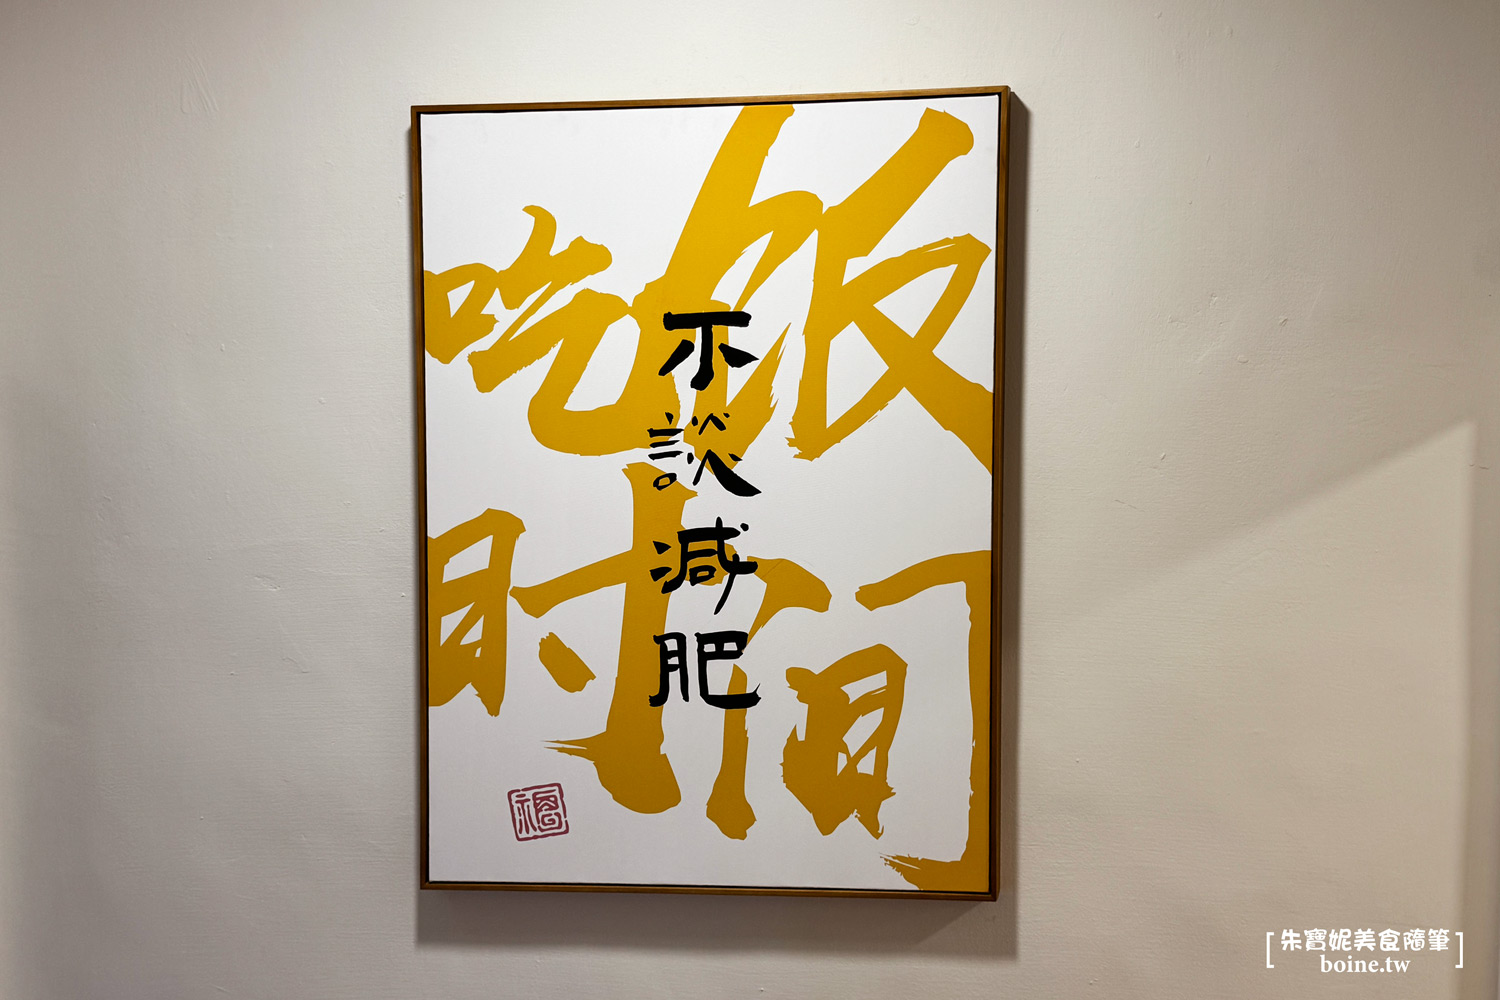 吃饭
时间
不談減肥
福
[朱寶妮美食隨筆]
boine.tw